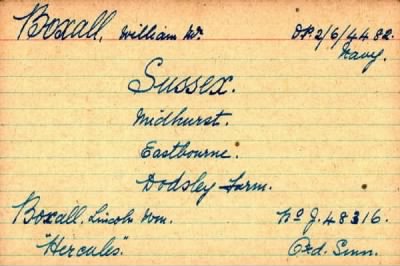 Boxall, William Mr. D.P. 2/6/4482.
Navy.
Sussex.
Midhurst.
Eastbourne.
Dodsley Farm.
Boxall, Lincoln Wm. No J. 48316.
"Hercules". Ord. Smn.